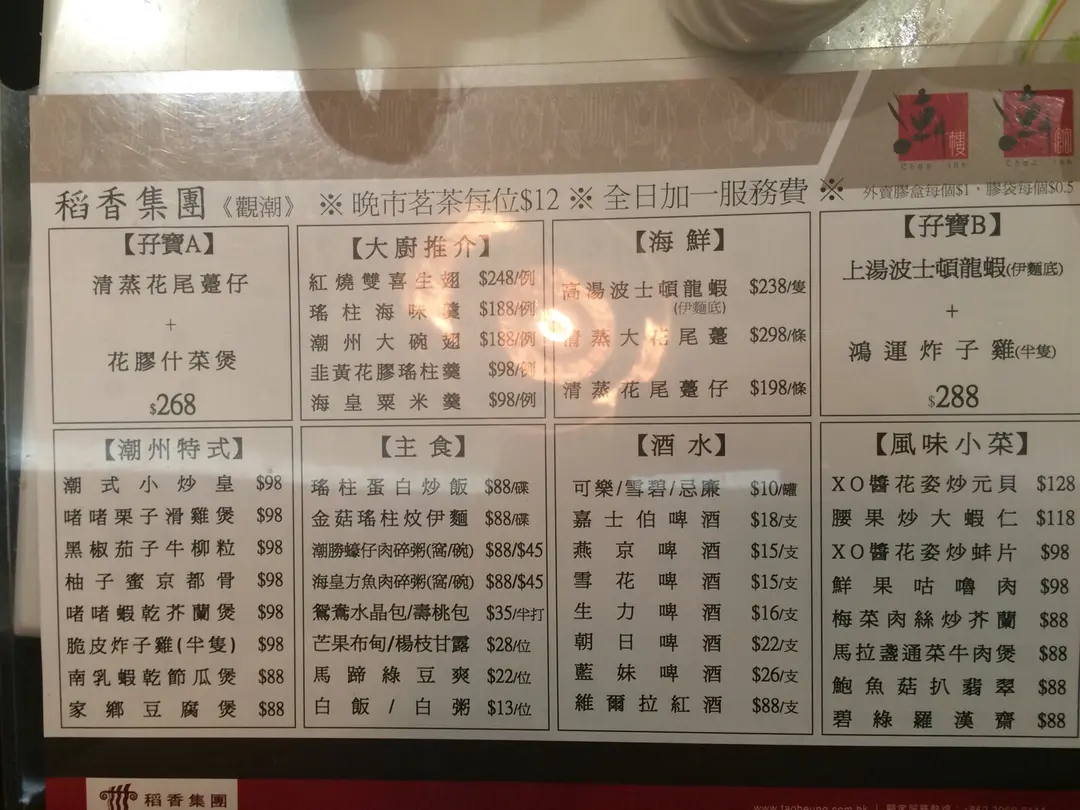 稻香集團《觀潮》 ※ 晚市茗茶每位$12 ※ 全日加一服務費 ※ 外賣膠盒每個$1，膠袋每個$0.5
樓
Chao Inn
Chao Inn
【孖寶A】
清蒸花尾躉仔
+
花膠什菜煲
$268
【大廚推介】
紅燒雙喜生翅 $248/例
瑤柱海味羹 $188/例
潮州大碗翅 $188/例
韭黃花膠瑤柱羹 $98/例
海皇粟米羹 $98/例
【海鮮】
高湯波士頓龍蝦 $238/隻
(伊麵底)
清蒸大花尾躉 $298/條
清蒸花尾躉仔 $198/條
【孖寶B】
上湯波士頓龍蝦(伊麵底)
+
鴻運炸子雞(半隻)
$288
【潮州特式】
潮式小炒皇 $98
啫啫栗子滑雞煲 $98
黑椒茄子牛柳粒 $98
柚子蜜京都骨 $98
啫啫蝦乾芥蘭煲 $98
脆皮炸子雞(半隻) $98
南乳蝦乾節瓜煲 $88
家鄉豆腐煲 $88
【主食】
瑤柱蛋白炒飯 $88/碟
金菇瑤柱炆伊麵 $88/碟
潮勝蠔仔肉碎粥(窩/碗) $88/$45
海皇方魚肉碎粥(窩/碗) $88/$45
鴛鴦水晶包/壽桃包 $35/半打
芒果布甸/楊枝甘露 $28/位
馬蹄綠豆爽 $22/位
白飯/白粥 $13/位
【酒水】
可樂/雪碧/忌廉 $10/罐
嘉士伯啤酒 $18/支
燕京啤酒 $15/支
雪花啤酒 $15/支
生力啤酒 $16/支
朝日啤酒 $22/支
藍妹啤酒 $26/支
維爾拉紅酒 $88/支
【風味小菜】
XO醬花姿炒元貝 $128
腰果炒大蝦仁 $118
XO醬花姿炒蚌片 $98
鮮果咕嚕肉 $98
梅菜肉絲炒芥蘭 $88
馬拉盞通菜牛肉煲 $88
鮑魚菇扒翡翠 $88
碧綠羅漢齋 $88
稻香集團